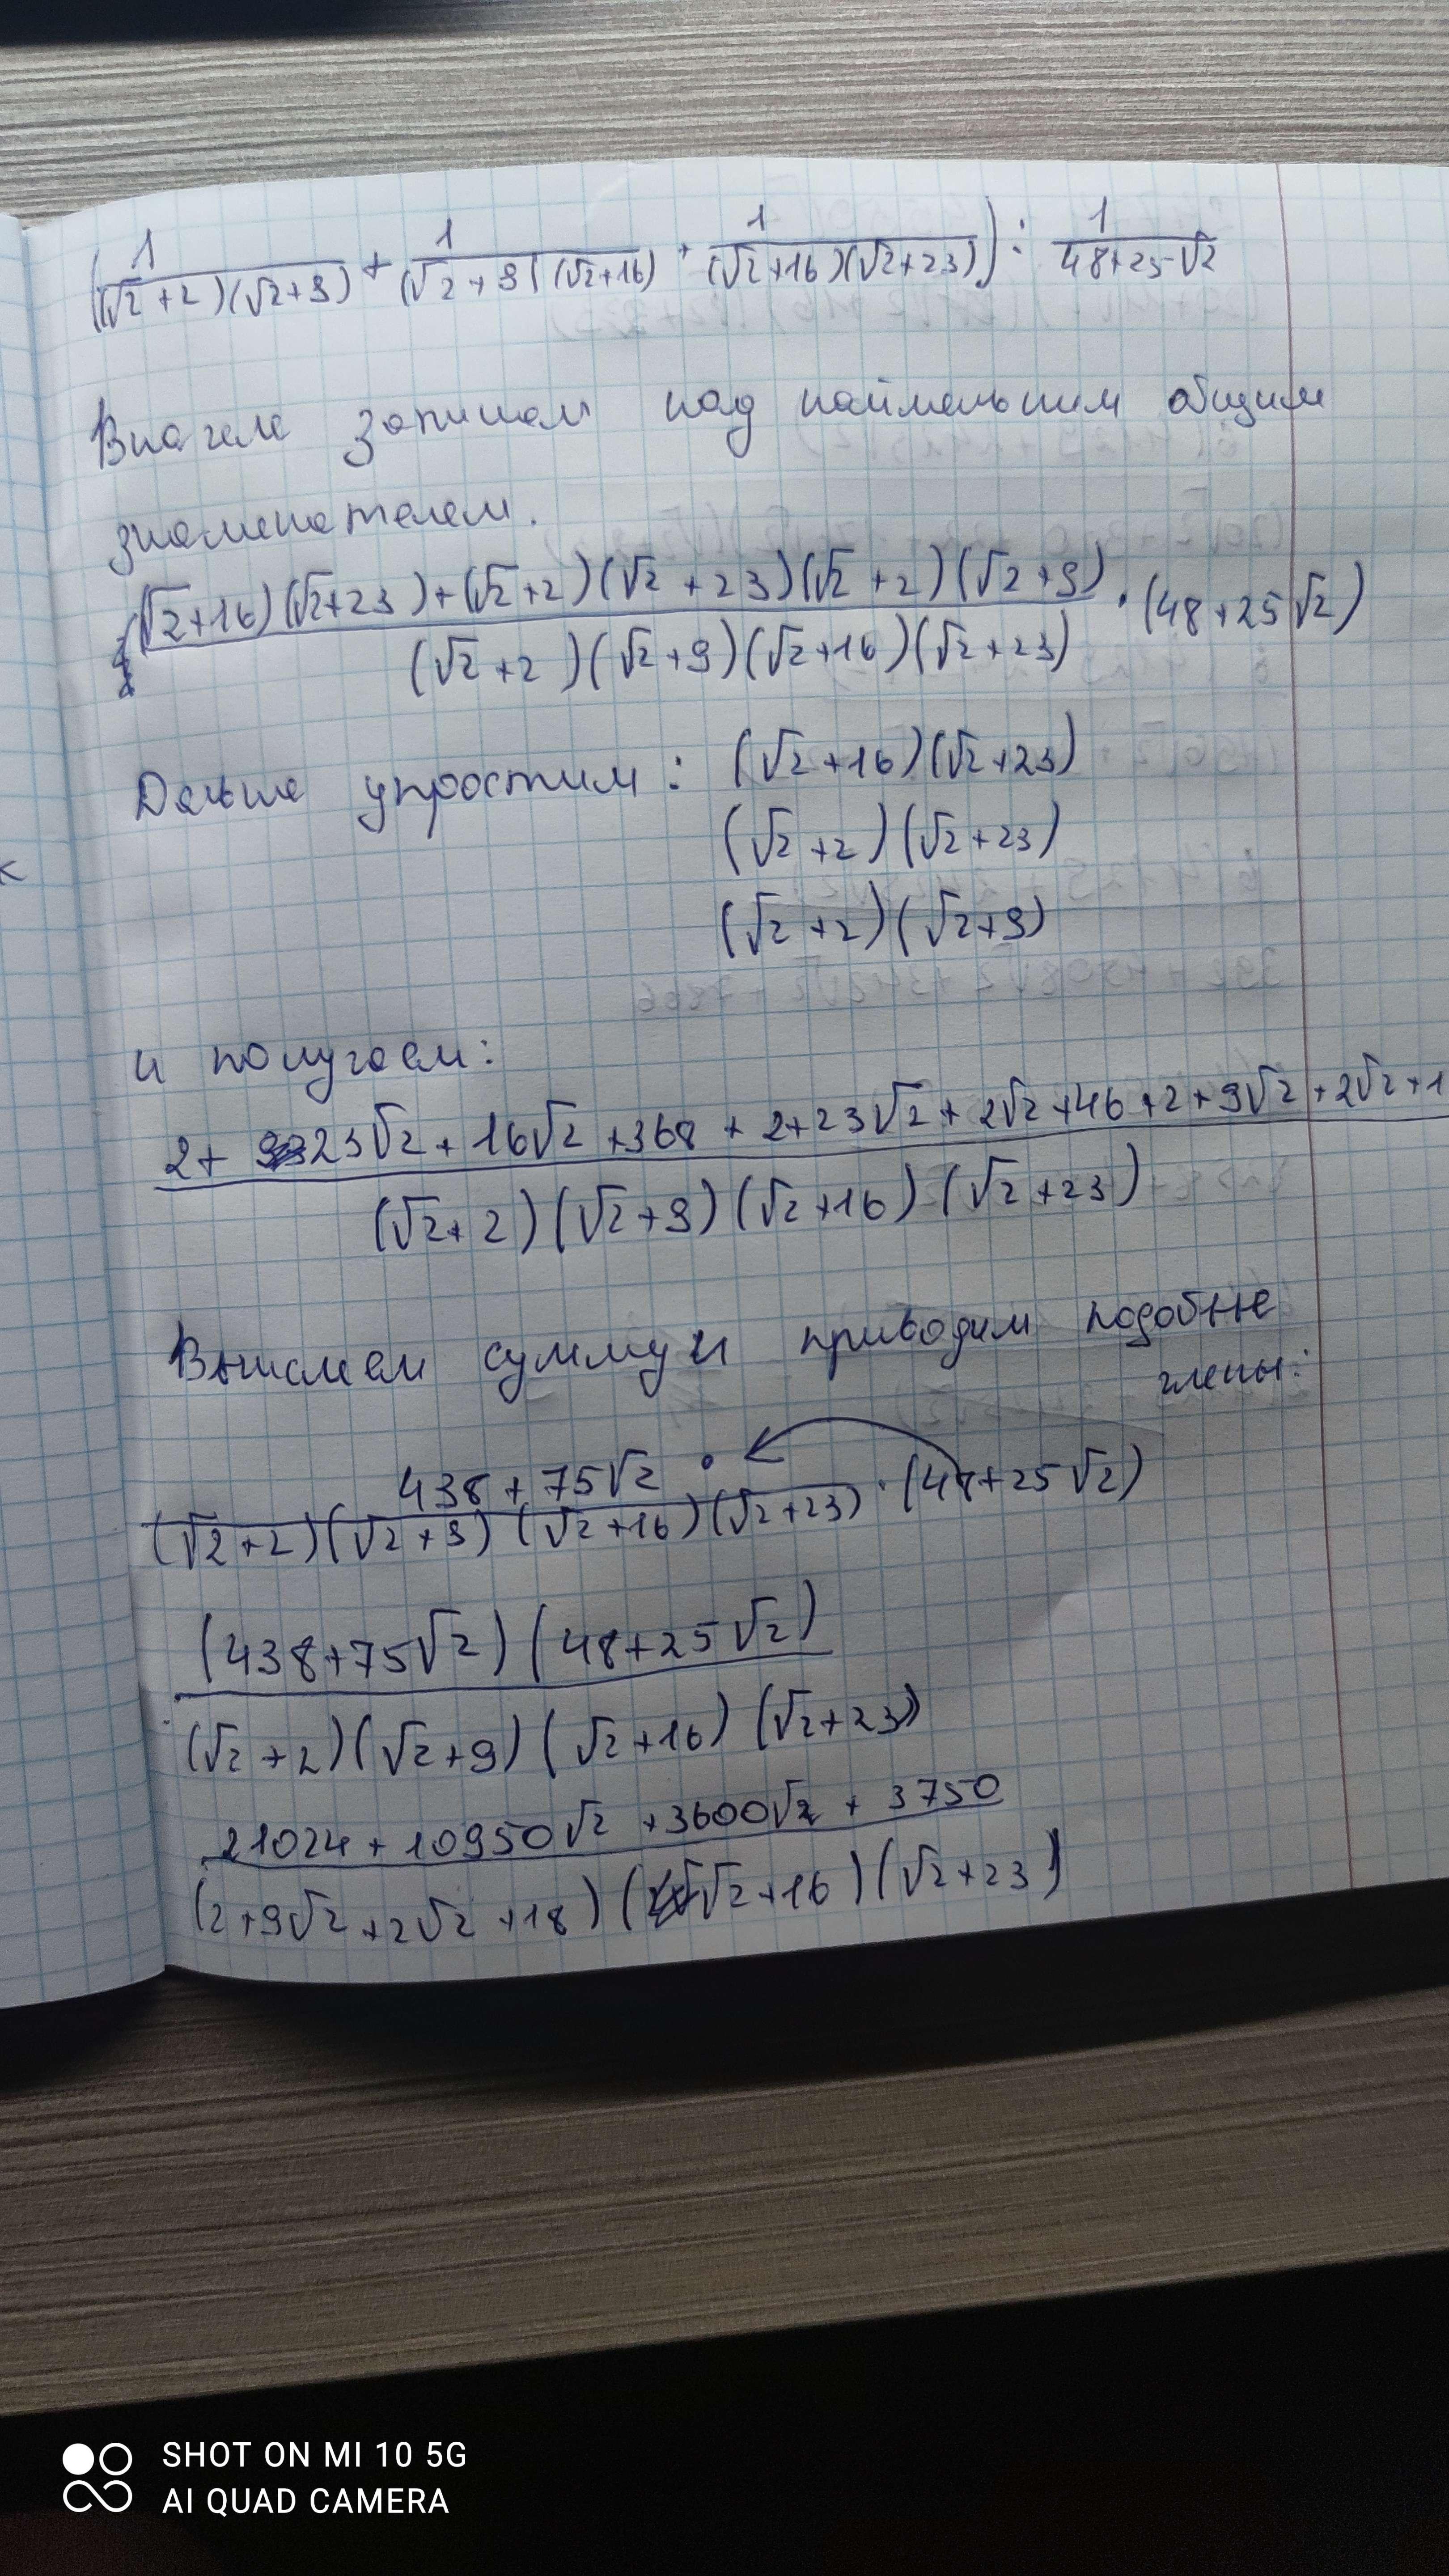 (1/((√2+2)(√2+9)) + 1/((√2+9)(√2+16)) + 1/((√2+16)(√2+23))) : 1/(48+25√2)
Вначале запишем над наименьшим общим
знаменателем.
((√2+16)(√2+23)+(√2+2)(√2+23)(√2+2)(√2+9))/((√2+2)(√2+9)(√2+16)(√2+23)) · (48+25√2)
Дальше упростим: (√2+16)(√2+23)
(√2+2)(√2+23)
(√2+2)(√2+9)
и получаем:
(2+23√2+16√2+368+2+23√2+2√2+46+2+9√2+2√2+1
(√2+2)(√2+9)(√2+16)(√2+23)
Вычислем сумму и приводим подобные
члены:
(438+75√2)/((√2+2)(√2+9)(√2+16)(√2+23)) · (48+25√2)
(438+75√2)(48+25√2)
(√2+2)(√2+9)(√2+16)(√2+23)
21024+10950√2+3600√2+3750
(2+9√2+2√2+18)(√2+16)(√2+23)
SHOT ON MI 10 5G
AI QUAD CAMERA